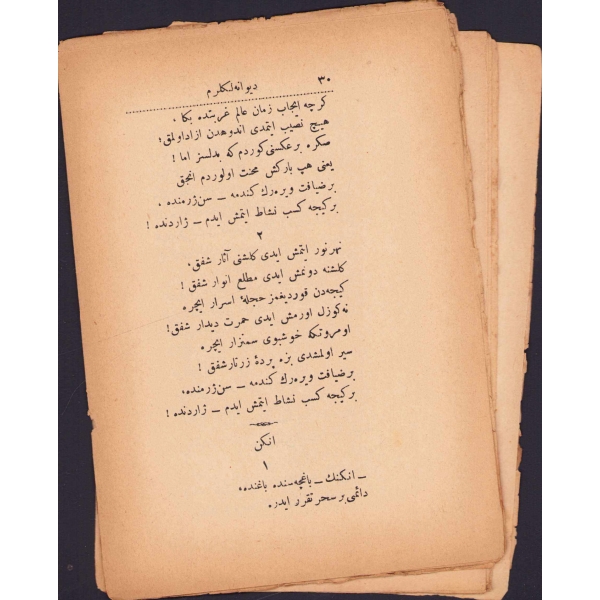 ٣٠
ديوانه‌لكلرم
كرچه ايجاب زمان عالم غربتده بكا ،
هيچ نصيب ايتمدى اندوهدن ازاد اولمق ؛
صكره بر عكسنى كوردم كه بدلسز اما !
يعنى هپ باركش محنت اولوردم انجق
بر ضيافت ويره‌رك كندمه ــ سن ژرمنده ،
بر كيجه كسب نشاط ايتمش ايدم ــ ژاردنده !
٢
نهر نور ايتمش ايدى كلشنى آثار شفق ،
كلشنه دونمش ايدى مطلع انوار شفق !
كيجه‌دن قورديغمز حجلهٔ اسرار ايچره ،
نه كوزل اورمش ايدى حمرت ديدار شفق !
او مروتكه خوشبوى سمنزار ايچره ،
سير اولمشدى بزه پردهٔ زرتار شفق !
بر ضيافت ويره‌رك كندمه ــ سن ژرمنده ،
بر كيجه كسب نشاط ايتمش ايدم ــ ژاردنده !
انكن
١
ــ انكنك ــ باغچه‌سنده باغنده
دائمى بر سحر تقرر ايدر .